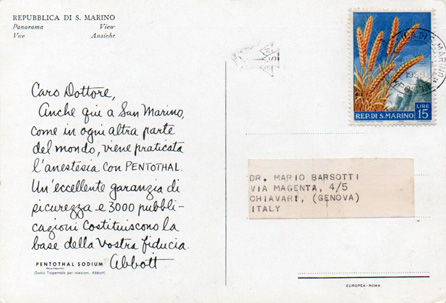 REPUBBLICA DI S. MARINO
Panorama View
Vue Ansicht
Caro Dottore,
Anche qui a San Marino,
come in ogni altra parte
del mondo, viene praticata
l'anestesia con PENTOTHAL.
Un'eccellente garanzia di
sicurezza e 3000 pubbli-
cazioni costituiscono la
base della Vostra fiducia.
Abbott
PENTOTHAL SODIUM
(Sodio Tiopentale per iniezioni, Abbott)
LIRE
REP. DI S. MARINO 15
DR. MARIO BARSOTTI
VIA MAGENTA, 4/5
CHIAVARI, (GENOVA)
ITALY
EUROPEA - ROMA